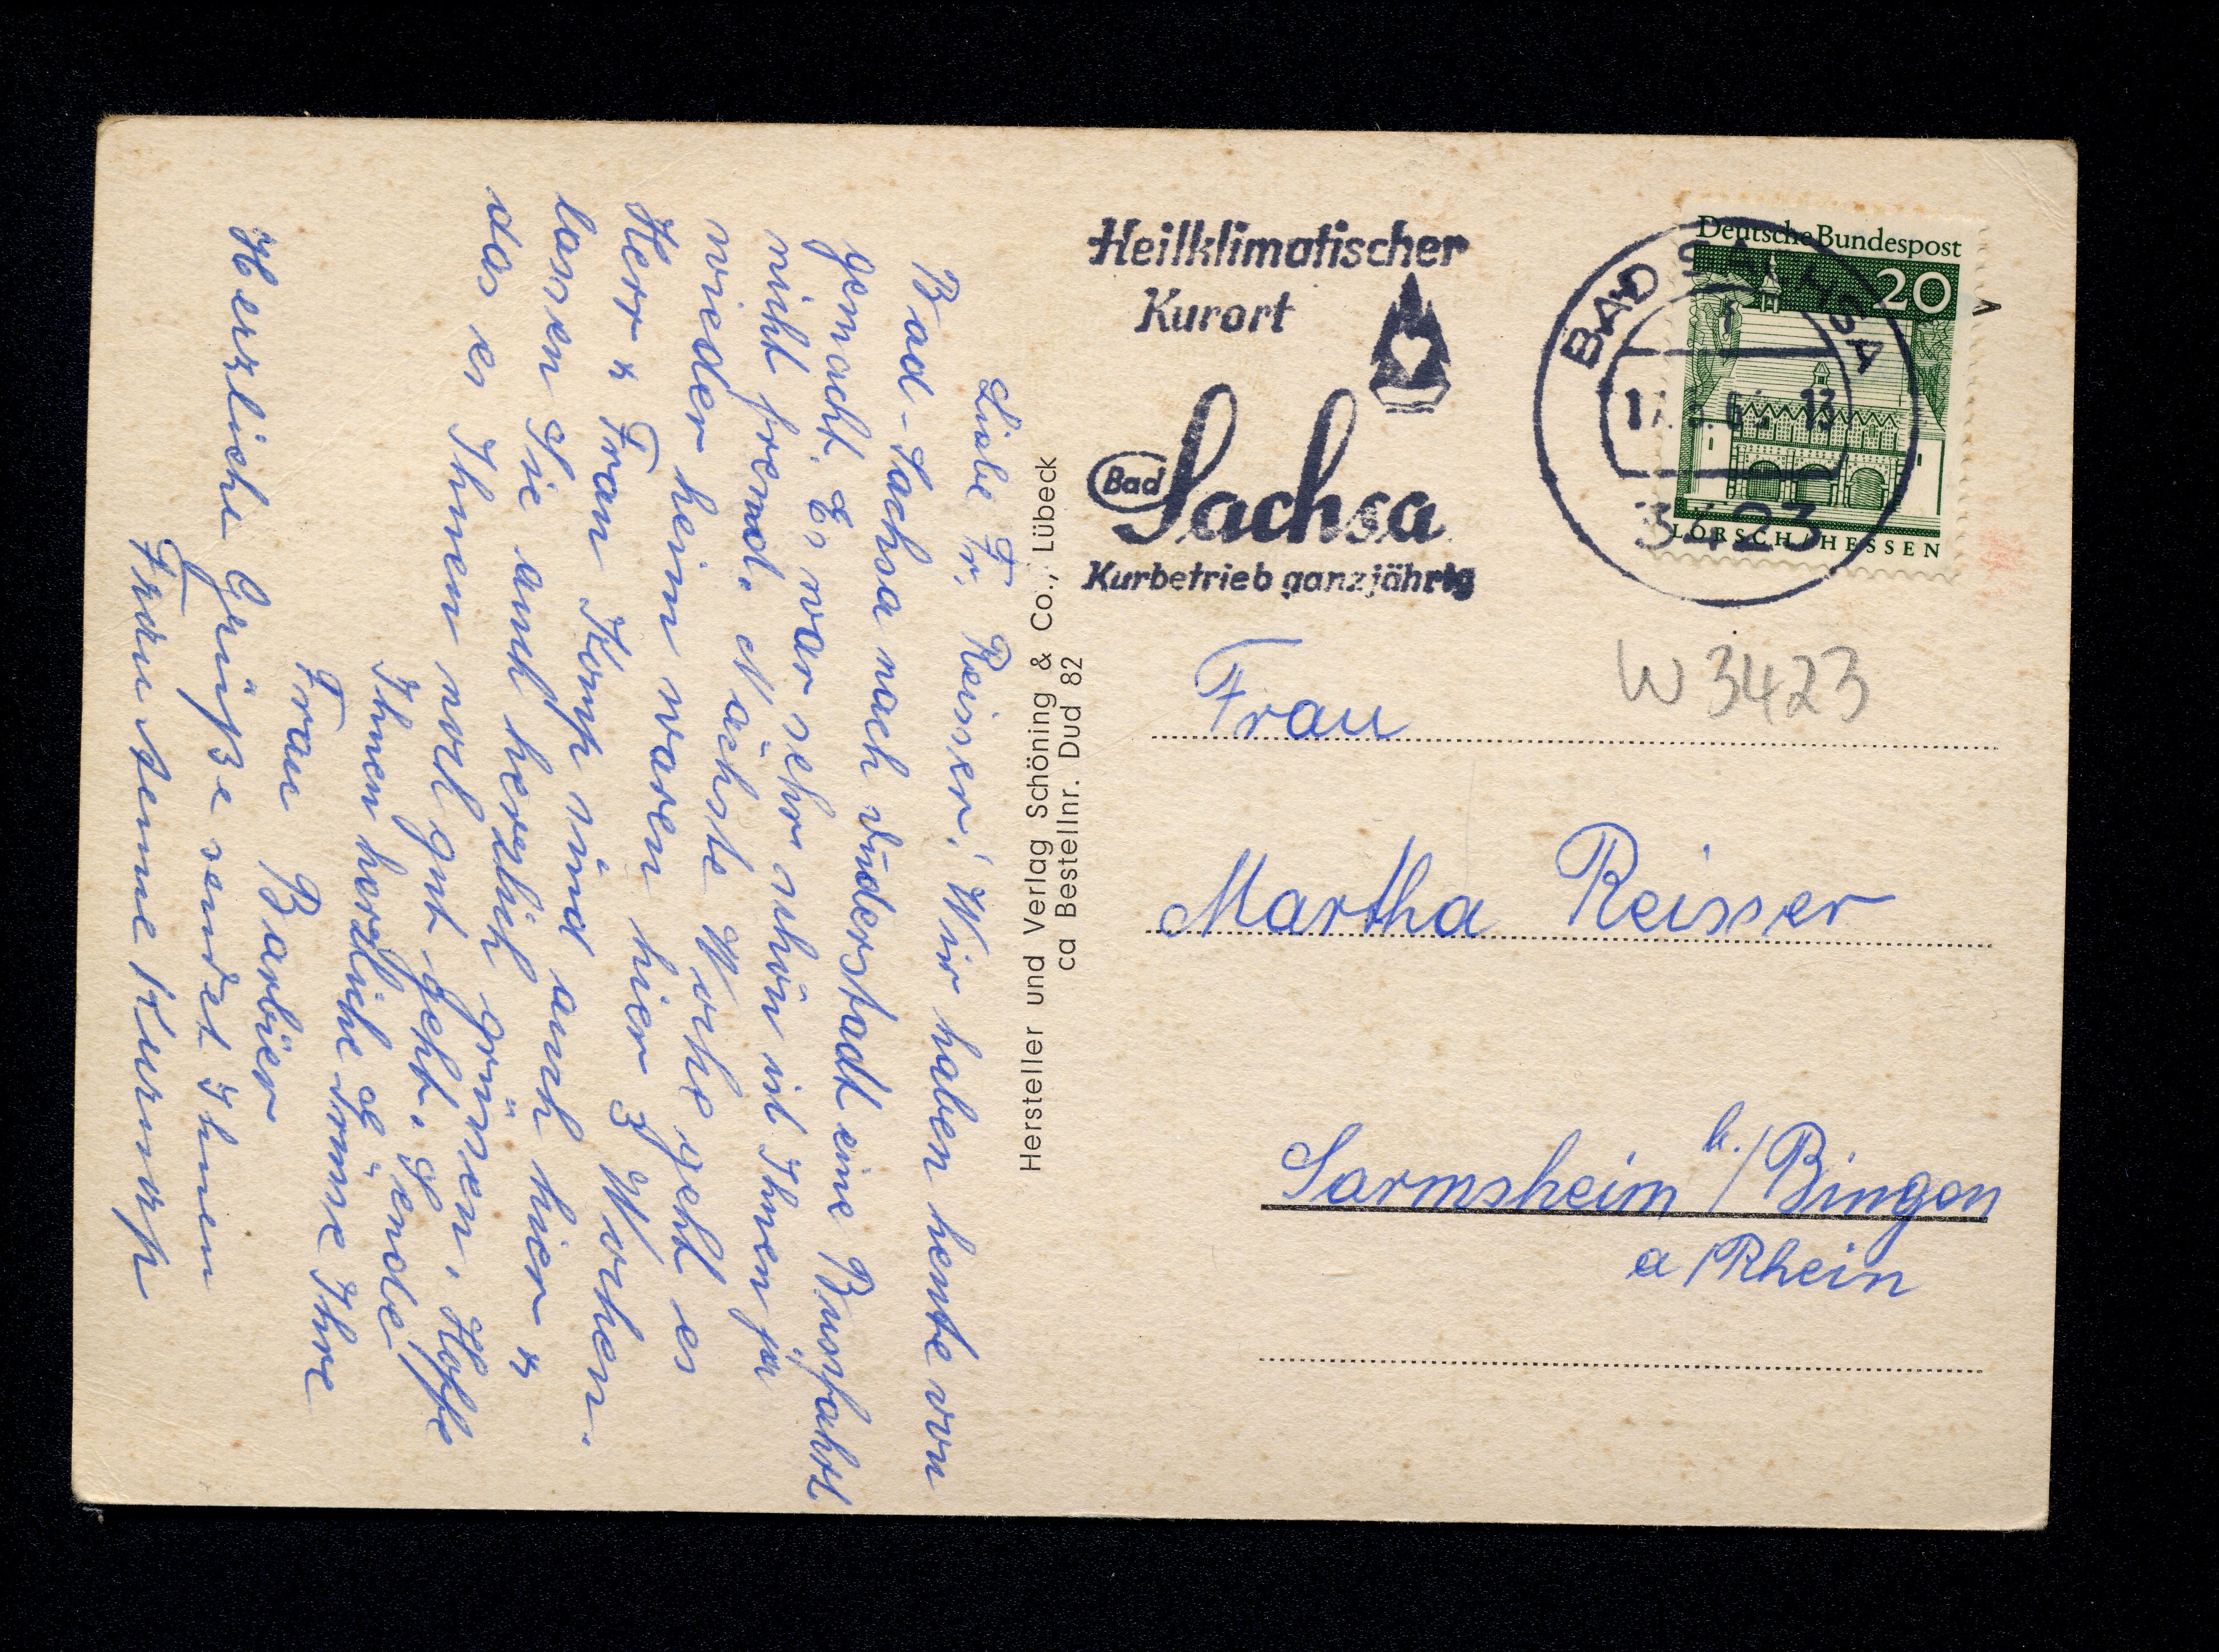 Liebe Fr. Reisser! Wir haben heute von
Bad-Sachsa nach Duderstadt eine Busfahrt
gemacht. Es war sehr schön ist Ihnen ja
nicht fremd. Nächste Woche geht es
wieder heim waren hier 3 Wochen.
Herr u Frau Komp sind auch hier u
lassen Sie auch herzlich grüssen. Hoffe
das es Ihnen noch gut geht. Sende
Ihnen herzliche Grüsse Ihre
Frau Barbier
Herzliche Grüße sendet Ihnen
Frau
Hersteller und Verlag Schöning & Co., Lübeck
ca Bestellnr. Dud 82
Heilklimatischer
Kurort
Bad Sachsa
Kurbetrieb ganzjährig
BAD SACHSA
3423
Deutsche Bundespost
20
LORSCH / HESSEN
W 3423
Frau
Martha Reisser
Sarmsheim b./Bingen
a/Rhein